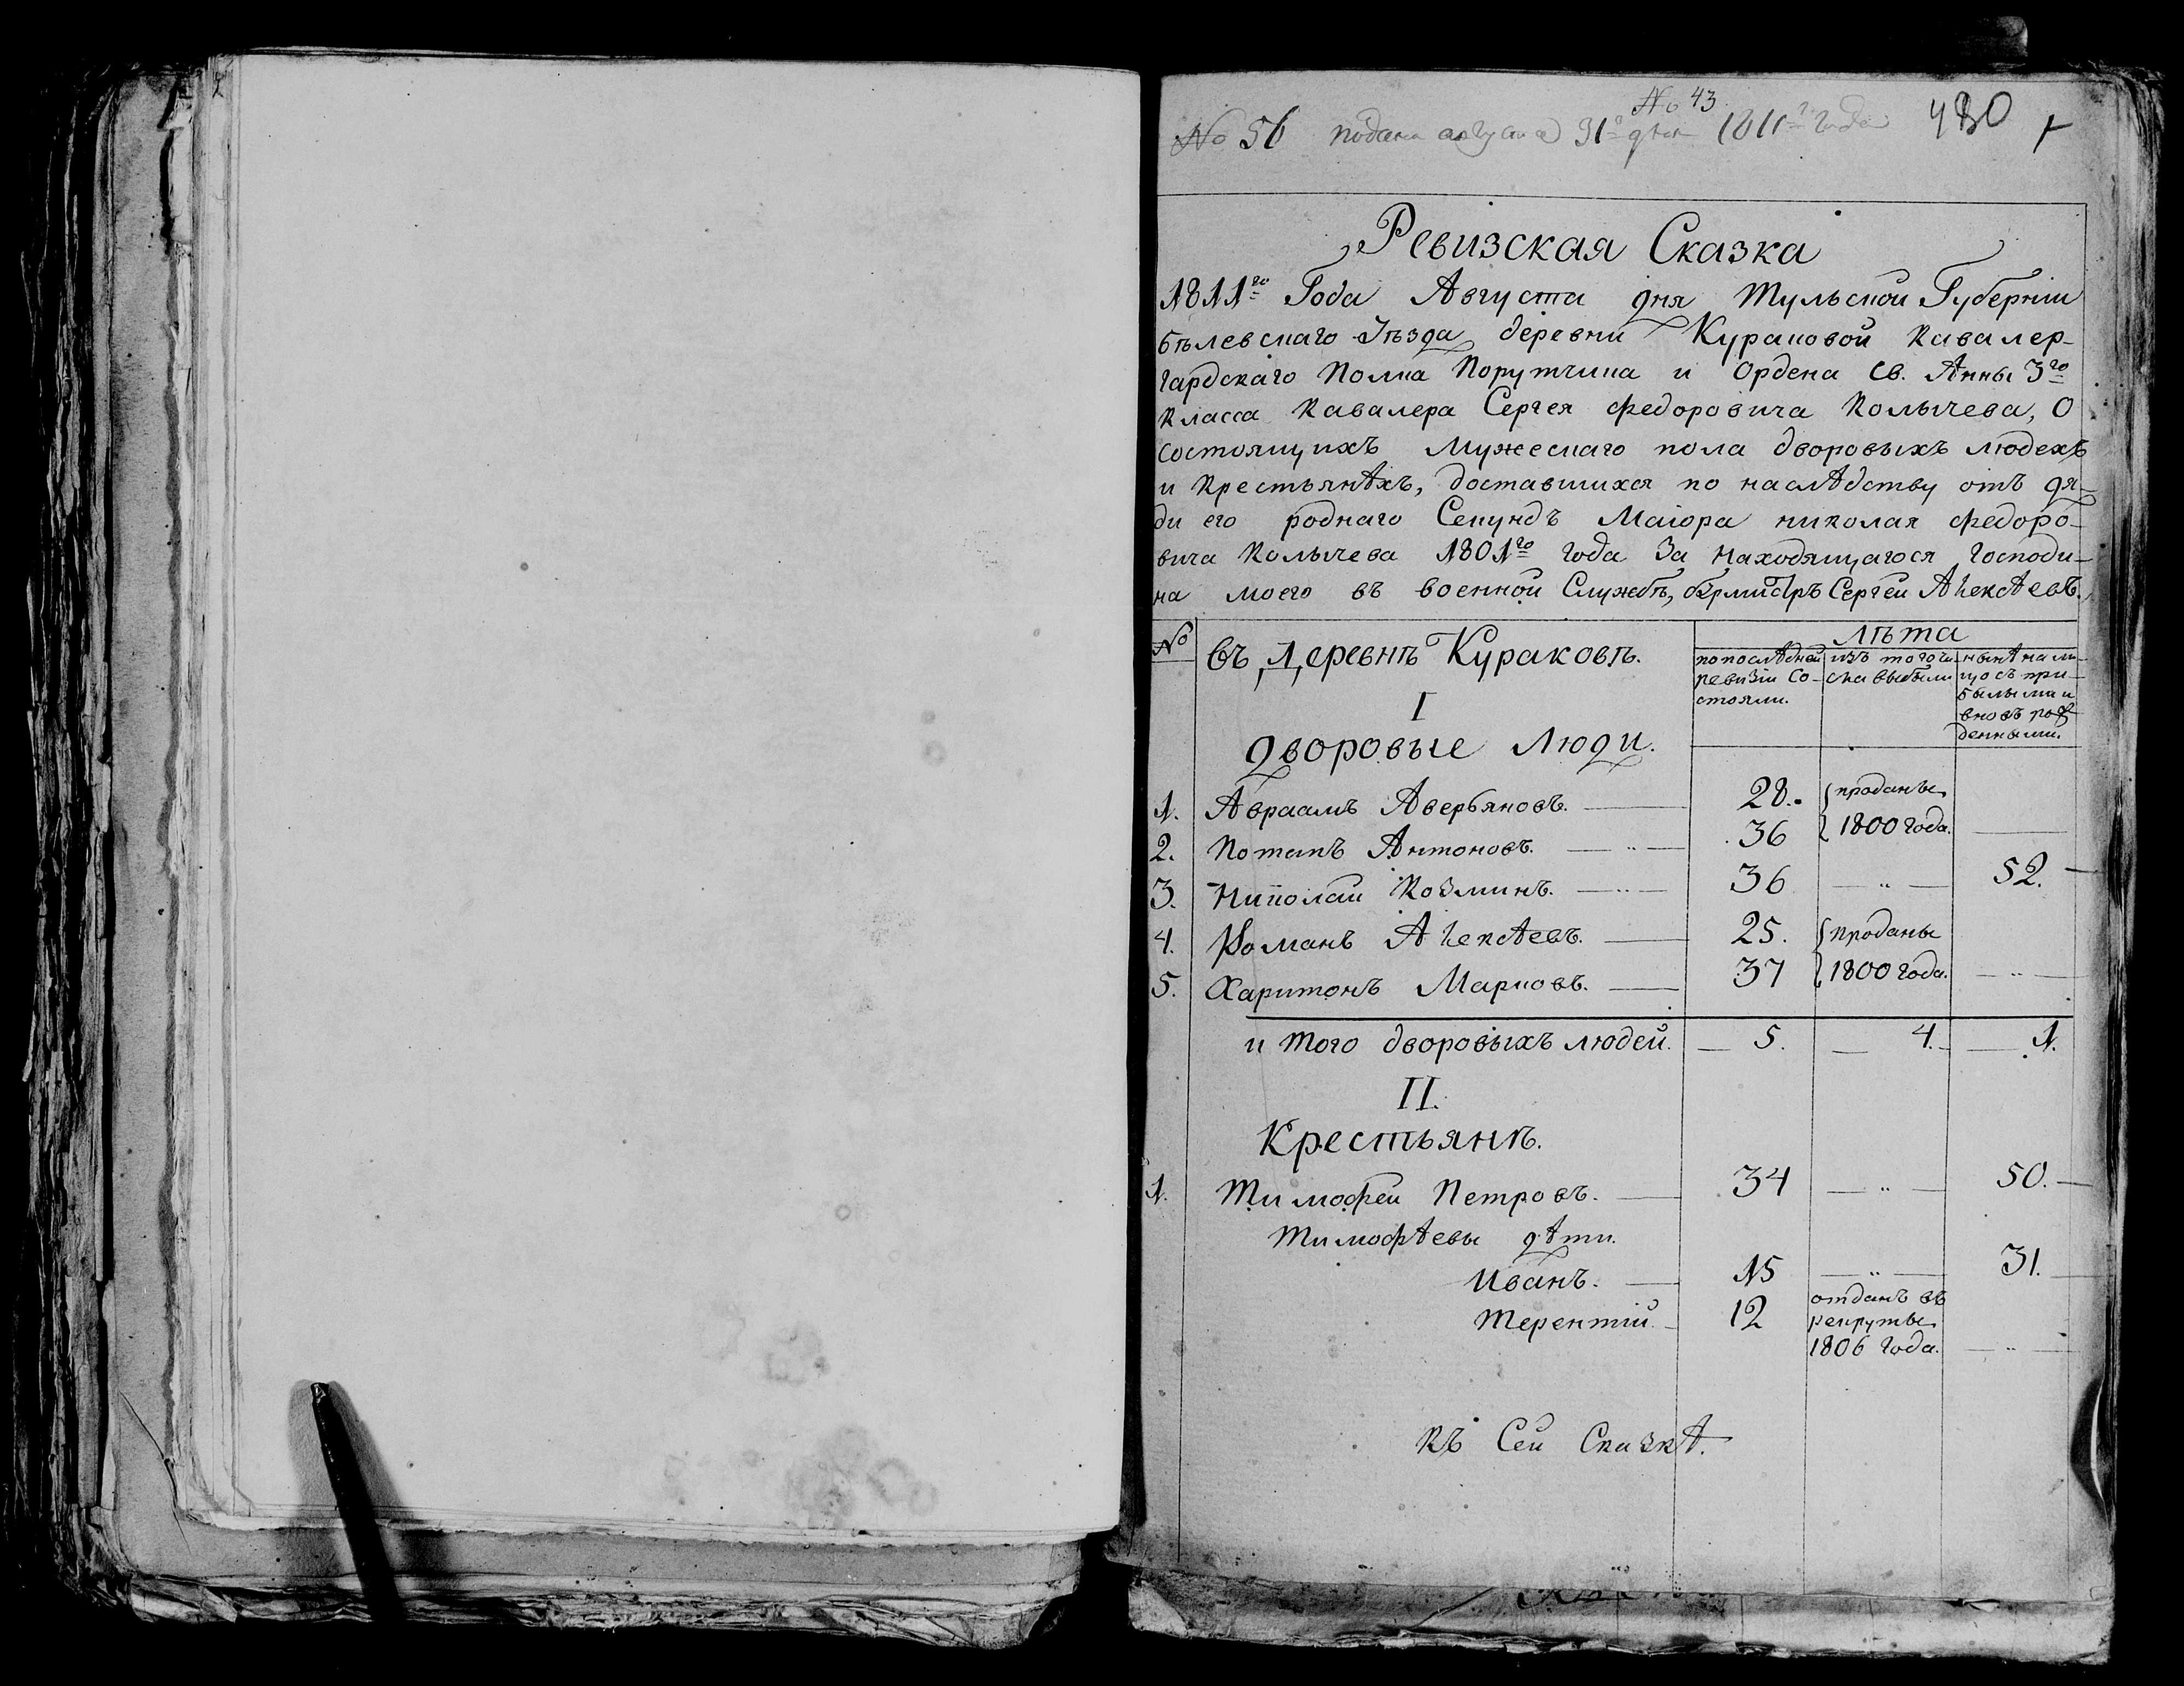 № 43
№ 56 подана августа 31го дня 1811го года 480
Ревизская Сказка
1811го Года Августа дня Тульской Губернiи
бѣлевскаго Уѣзда деревни Кураковой Кавалер-
гардскаго Полка Порутчика и Ордена Св. Анны 3го
Класса Кавалера Сергея Федоровича Колычева, О
состоящихъ Мужескаго пола дворовыхъ людехъ
и Крестьянѣхъ, доставшихся по наслѣдству отъ дя-
ди его роднаго Секундъ Маiора николая Федоро-
вича Колычева 1801го года За Находящагося Господи-
на моего въ военной Службѣ, бурмистръ Сергей Алексѣевъ.
№ въ Деревнѣ Кураковѣ. Лѣта
по послѣдней ревизiи Со- стояли. изъ того чи- сла выбыли нынѣ на ли- цо съ при- былыми и вновь рож- денными.
I
дворовые Люди.
1. Авраамъ Аверьяновъ. 28. проданы
2. Потапъ Антоновъ. 36 1800 года.
3. Николай Козминъ. 36 52.
4. Романъ Алексѣевъ. 25. проданы
5. Харитонъ Марковъ. 37 1800 года.
и того дворовыхъ людей. 5. 4. 1.
II.
Крестьянѣ.
1. Тимофей Петровъ. 34 50.
Тимофѣевы дѣти.
Иванъ. 15 31.
Терентiй. 12 отданъ въ
рекруты
1806 года.
Къ Сей Сказкѣ.